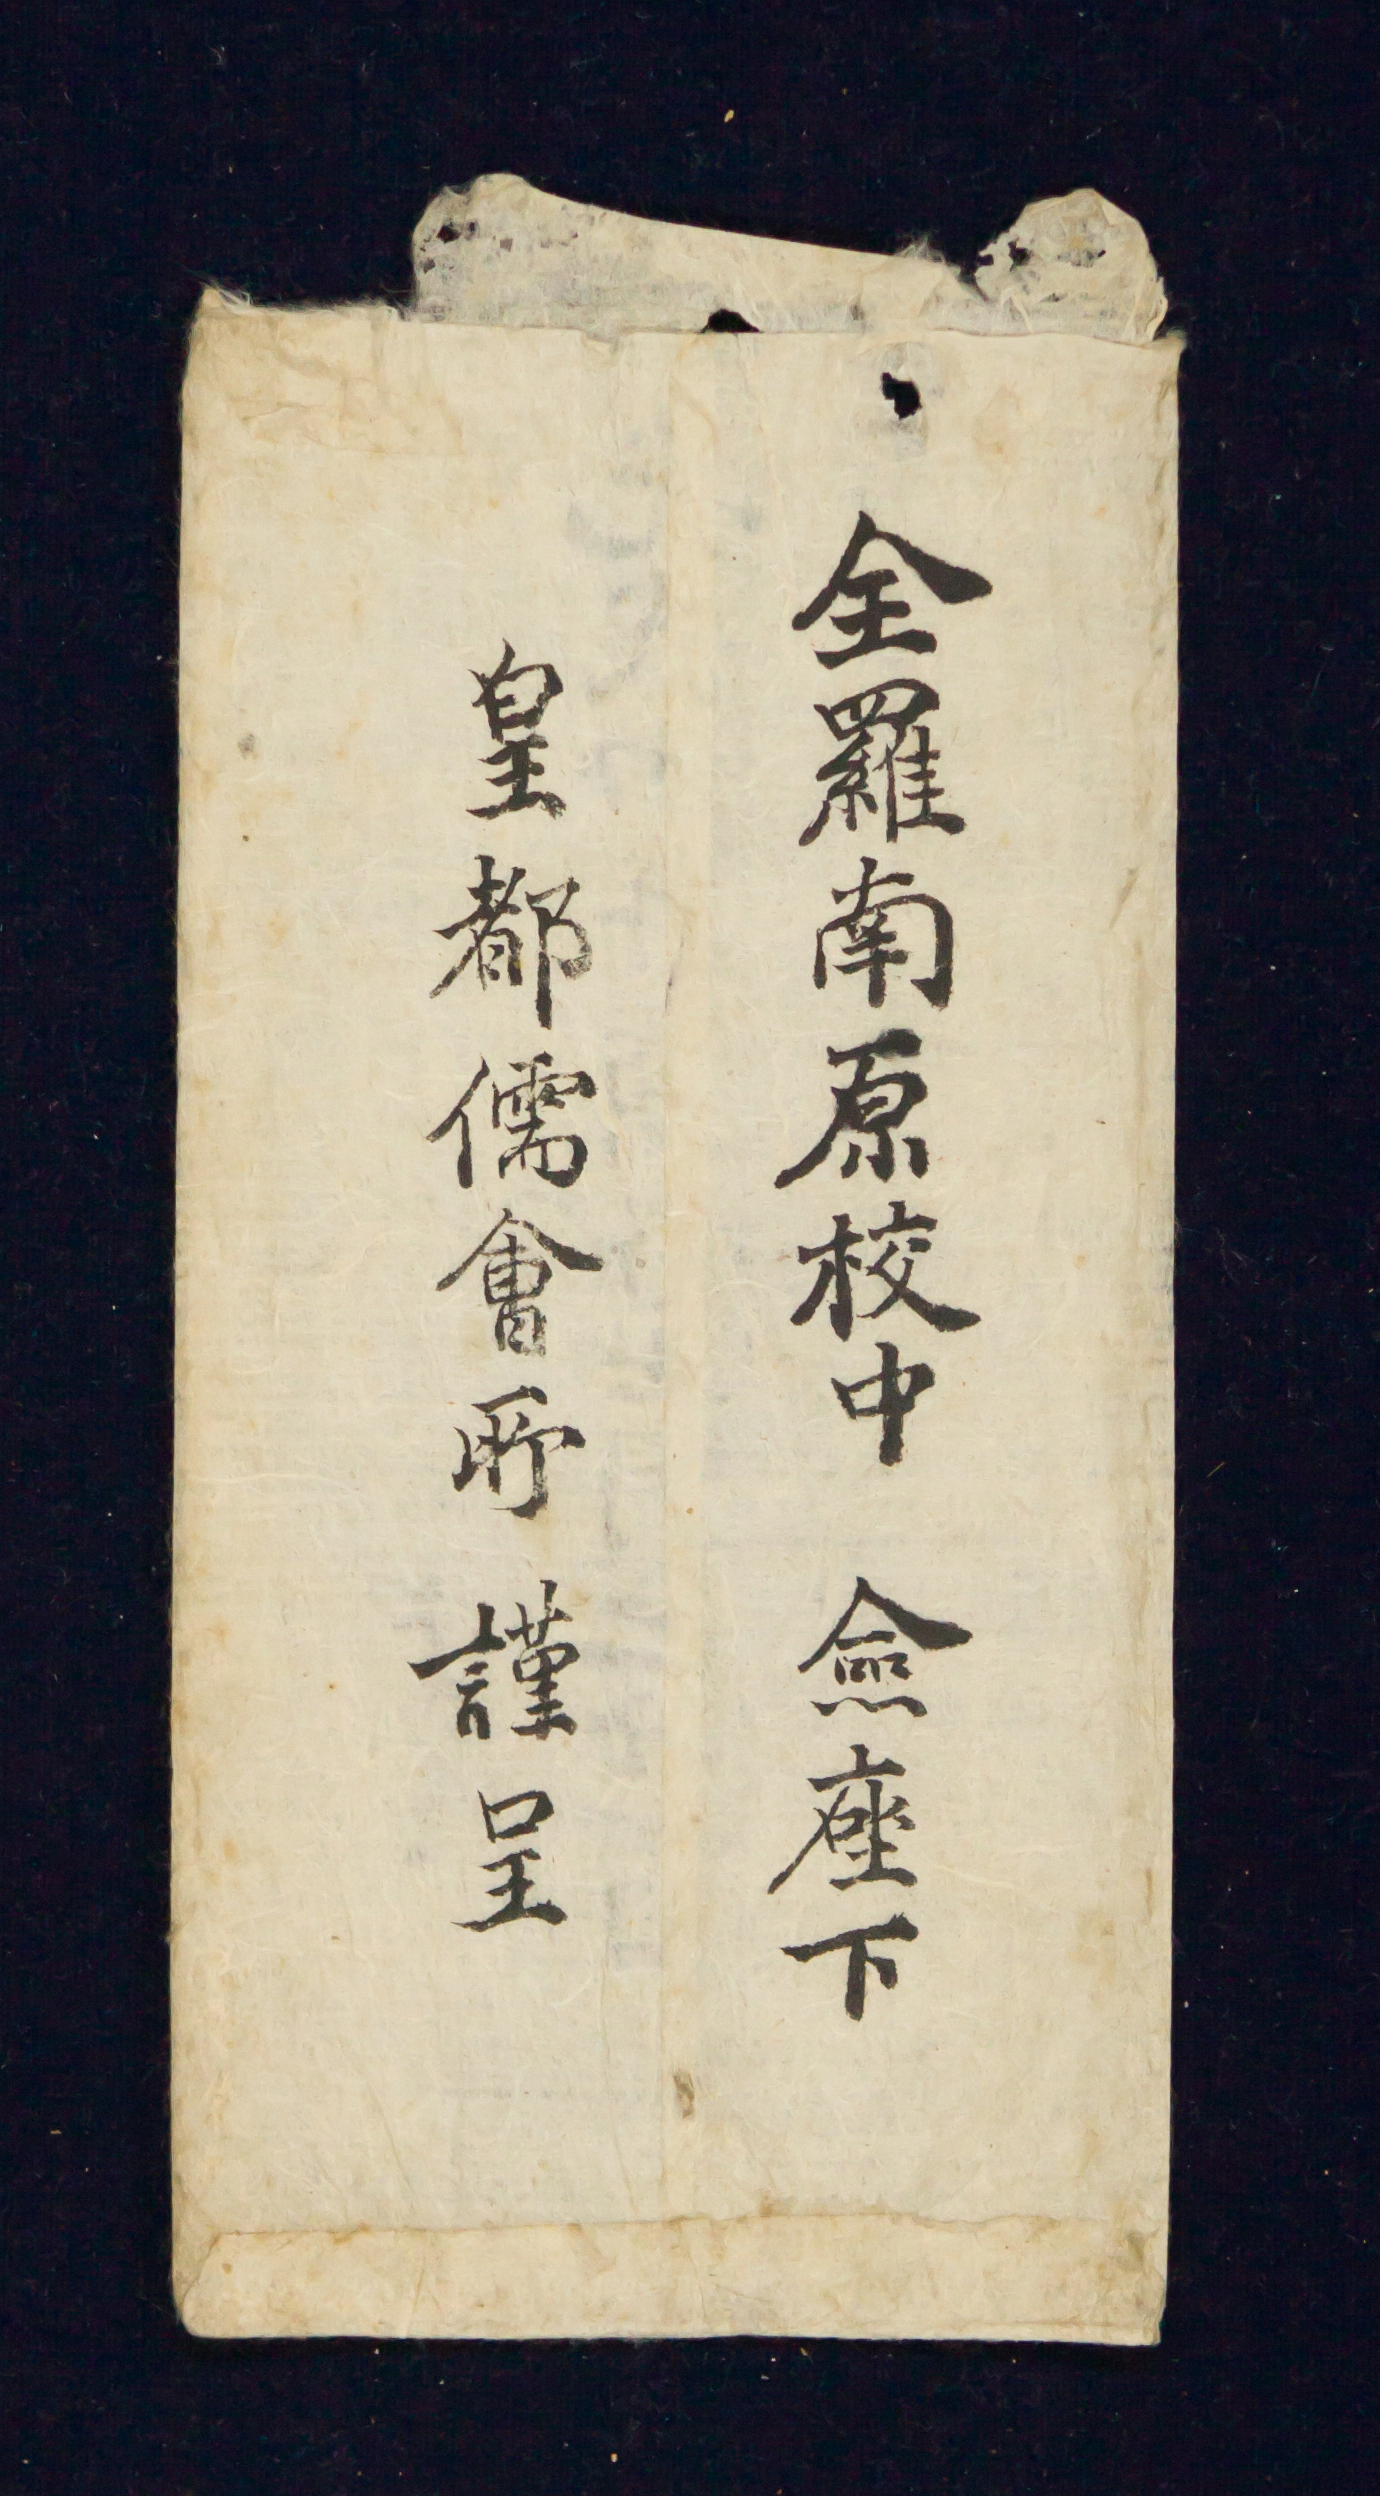 全羅南原校中 僉座下
皇都儒會所 謹呈